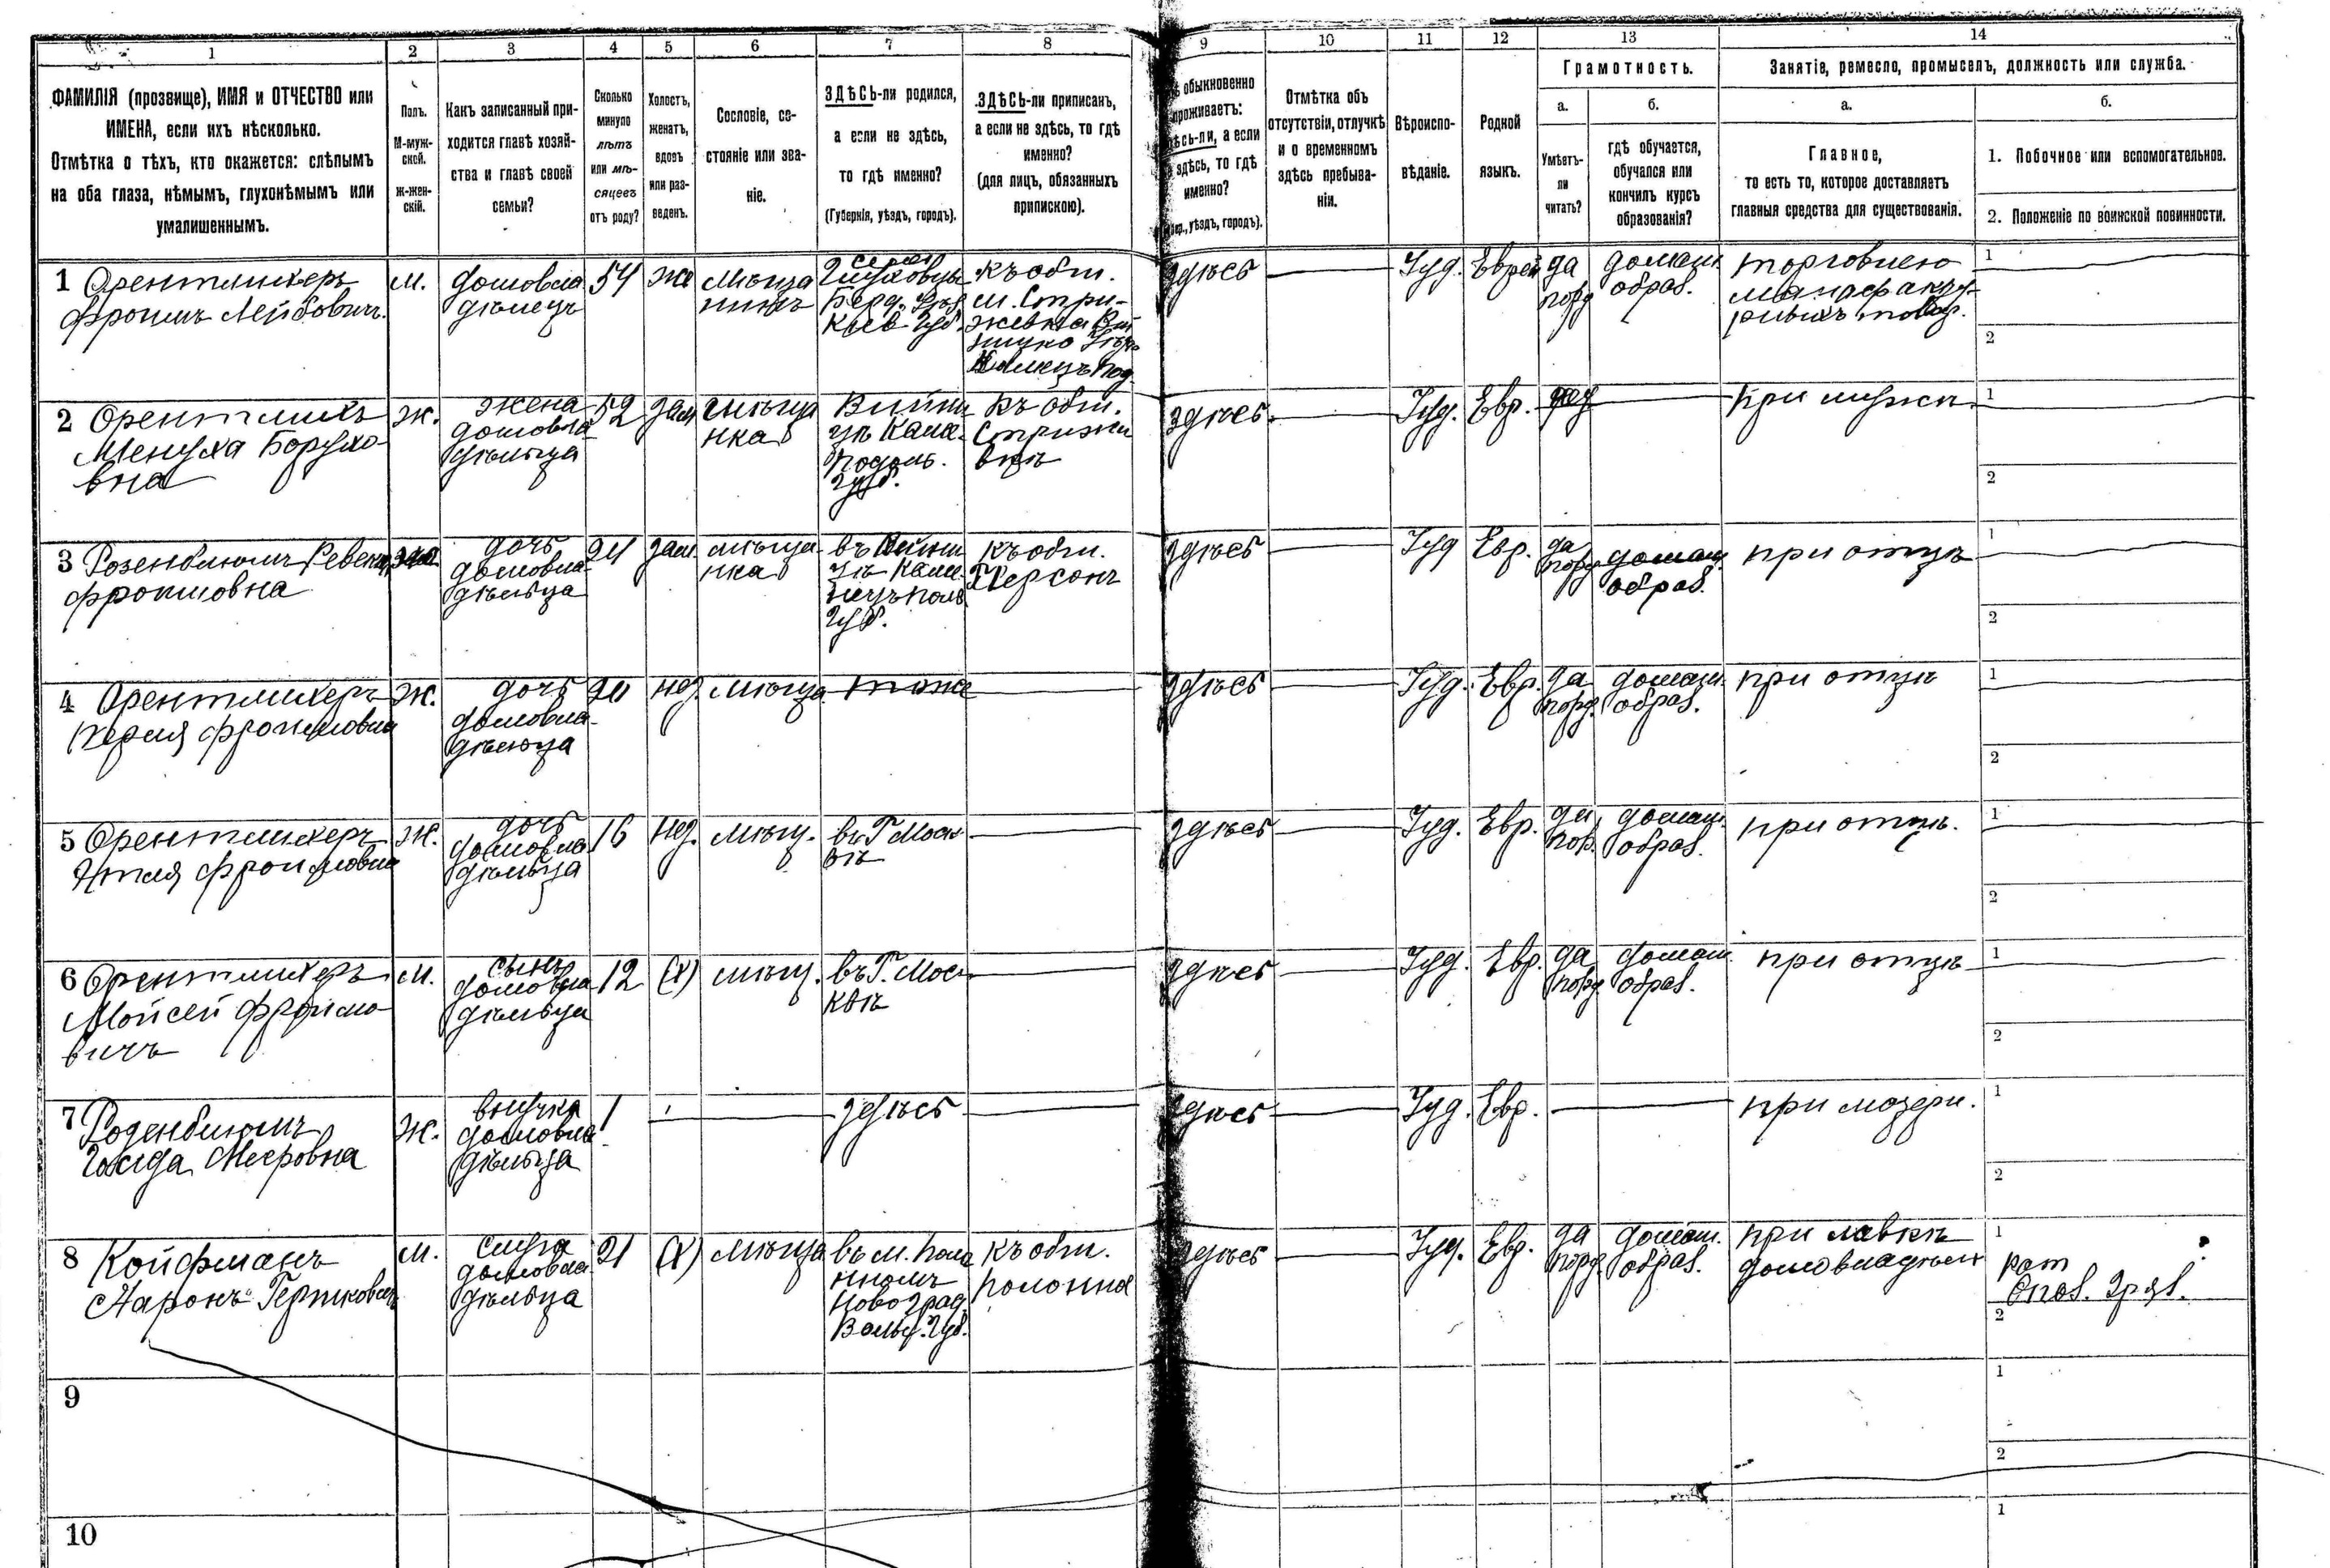 1 2 3 4 5 6 7 8 9 10 11 12 13 14
ФАМИЛІЯ (прозвище), ИМЯ и ОТЧЕСТВО или
ИМЕНА, если ихъ нѣсколько.
Отмѣтка о тѣхъ, кто окажется: слѣпымъ
на оба глаза, нѣмымъ, глухонѣмымъ или
умалишеннымъ.
Полъ.
М-муж-
ской.
Ж-жен-
скій.
Какъ записанный при-
ходится главѣ хозяй-
ства и главѣ своей
семьи?
Сколько
минуло
лѣтъ
или мѣ-
сяцевъ
отъ роду?
Холостъ,
женатъ,
вдовъ
или раз-
веденъ.
Сословіе, со-
стояніе или зва-
ніе.
ЗДѢСЬ-ли родился,
а если не здѣсь,
то гдѣ именно?
(Губернія, уѣздъ, городъ).
ЗДѢСЬ-ли приписанъ,
а если не здѣсь, то гдѣ
именно?
(для лицъ, обязанныхъ
припискою).
обыкновенно
проживаетъ:
здѣсь-ли, а если
здѣсь, то гдѣ
именно?
уѣздъ, городъ).
Отмѣтка объ
отсутствіи, отлучкѣ
и о временномъ
здѣсь пребыва-
ніи.
Вѣроиспо-
вѣданіе.
Родной
языкъ.
Грамотность.
а.
Умѣетъ-
ли
читать?
б.
гдѣ обучается,
обучался или
кончилъ курсъ
образованія?
Занятіе, ремесло, промыселъ, должность или служба.
а.
Главное,
то есть то, которое доставляетъ
главныя средства для существованія.
б.
1. Побочное или вспомогательное.
2. Положеніе по воинской повинности.
1 Орентлихеръ
Фроимъ Лейбовичъ
М.
домовла
дѣлецъ
54
же
мѣща
нинъ
Берд. уѣз
Кіев. Губ.
къ общ.
м. Стри-
жевка
здѣсь
Іуд.
Еврей
да
домаш
образ.
торговлею
1
2
2 Орентлихъ
Менуха Борухо-
вна
Ж.
жена
домовла
дѣльца
52
зам
мѣща
нка
Подоль.
Губ.
Къ общ.
Стрижи
вцѣ
здѣсь
Іуд.
Евр.
при мужѣ
1
2
3 Розенблюмъ Ревека
Фроимовна
дочь
домовла-
дѣльца
24
зам
мѣща
нка
въ
Губ.
къ общ.
Херсонъ
здѣсь
Іуд
Евр.
да
домаш.
образ.
при отцѣ
1
2
4 Орентлихеръ
Перля Фроимовна
Ж.
дочь
домовла-
дѣльца
20
дѣв.
мѣща.
тоже
здѣсь
Іуд.
Евр.
да
домаш.
образ.
при отцѣ
1
2
5 Орентлихеръ
Фроимовна
Ж.
дочь
домовла
дѣльца
16
мѣщ.
въ Г. Моск
вѣ
здѣсь
Іуд.
Евр.
да
домаш.
образ.
при отцѣ.
1
2
6 Орентлихеръ
Мойсей Фроимо-
вичъ
М.
сынъ
домовла
дѣльца
12
(х)
мѣщ.
въ Г. Мос-
квѣ
здѣсь
Іуд.
Евр.
да
домаш.
образ.
при отцѣ
1
2
7 Розенблюмъ
Меировна
Ж.
внучка
домовла
дѣльца
1
здѣсь
здѣсь
Іуд.
Евр.
при матери.
1
2
8 Койфманъ
Ааронъ Гершковичъ
М.
слуга
домовла
дѣльца
21
(х)
мѣща
въ м. Поло
нномъ
Новоград
Волын. Губ.
къ общ.
Полонна
здѣсь
Іуд.
Евр.
да
домаш.
образ.
при лавкѣ
домовладѣл
1
рат
2
9
1
2
10
1